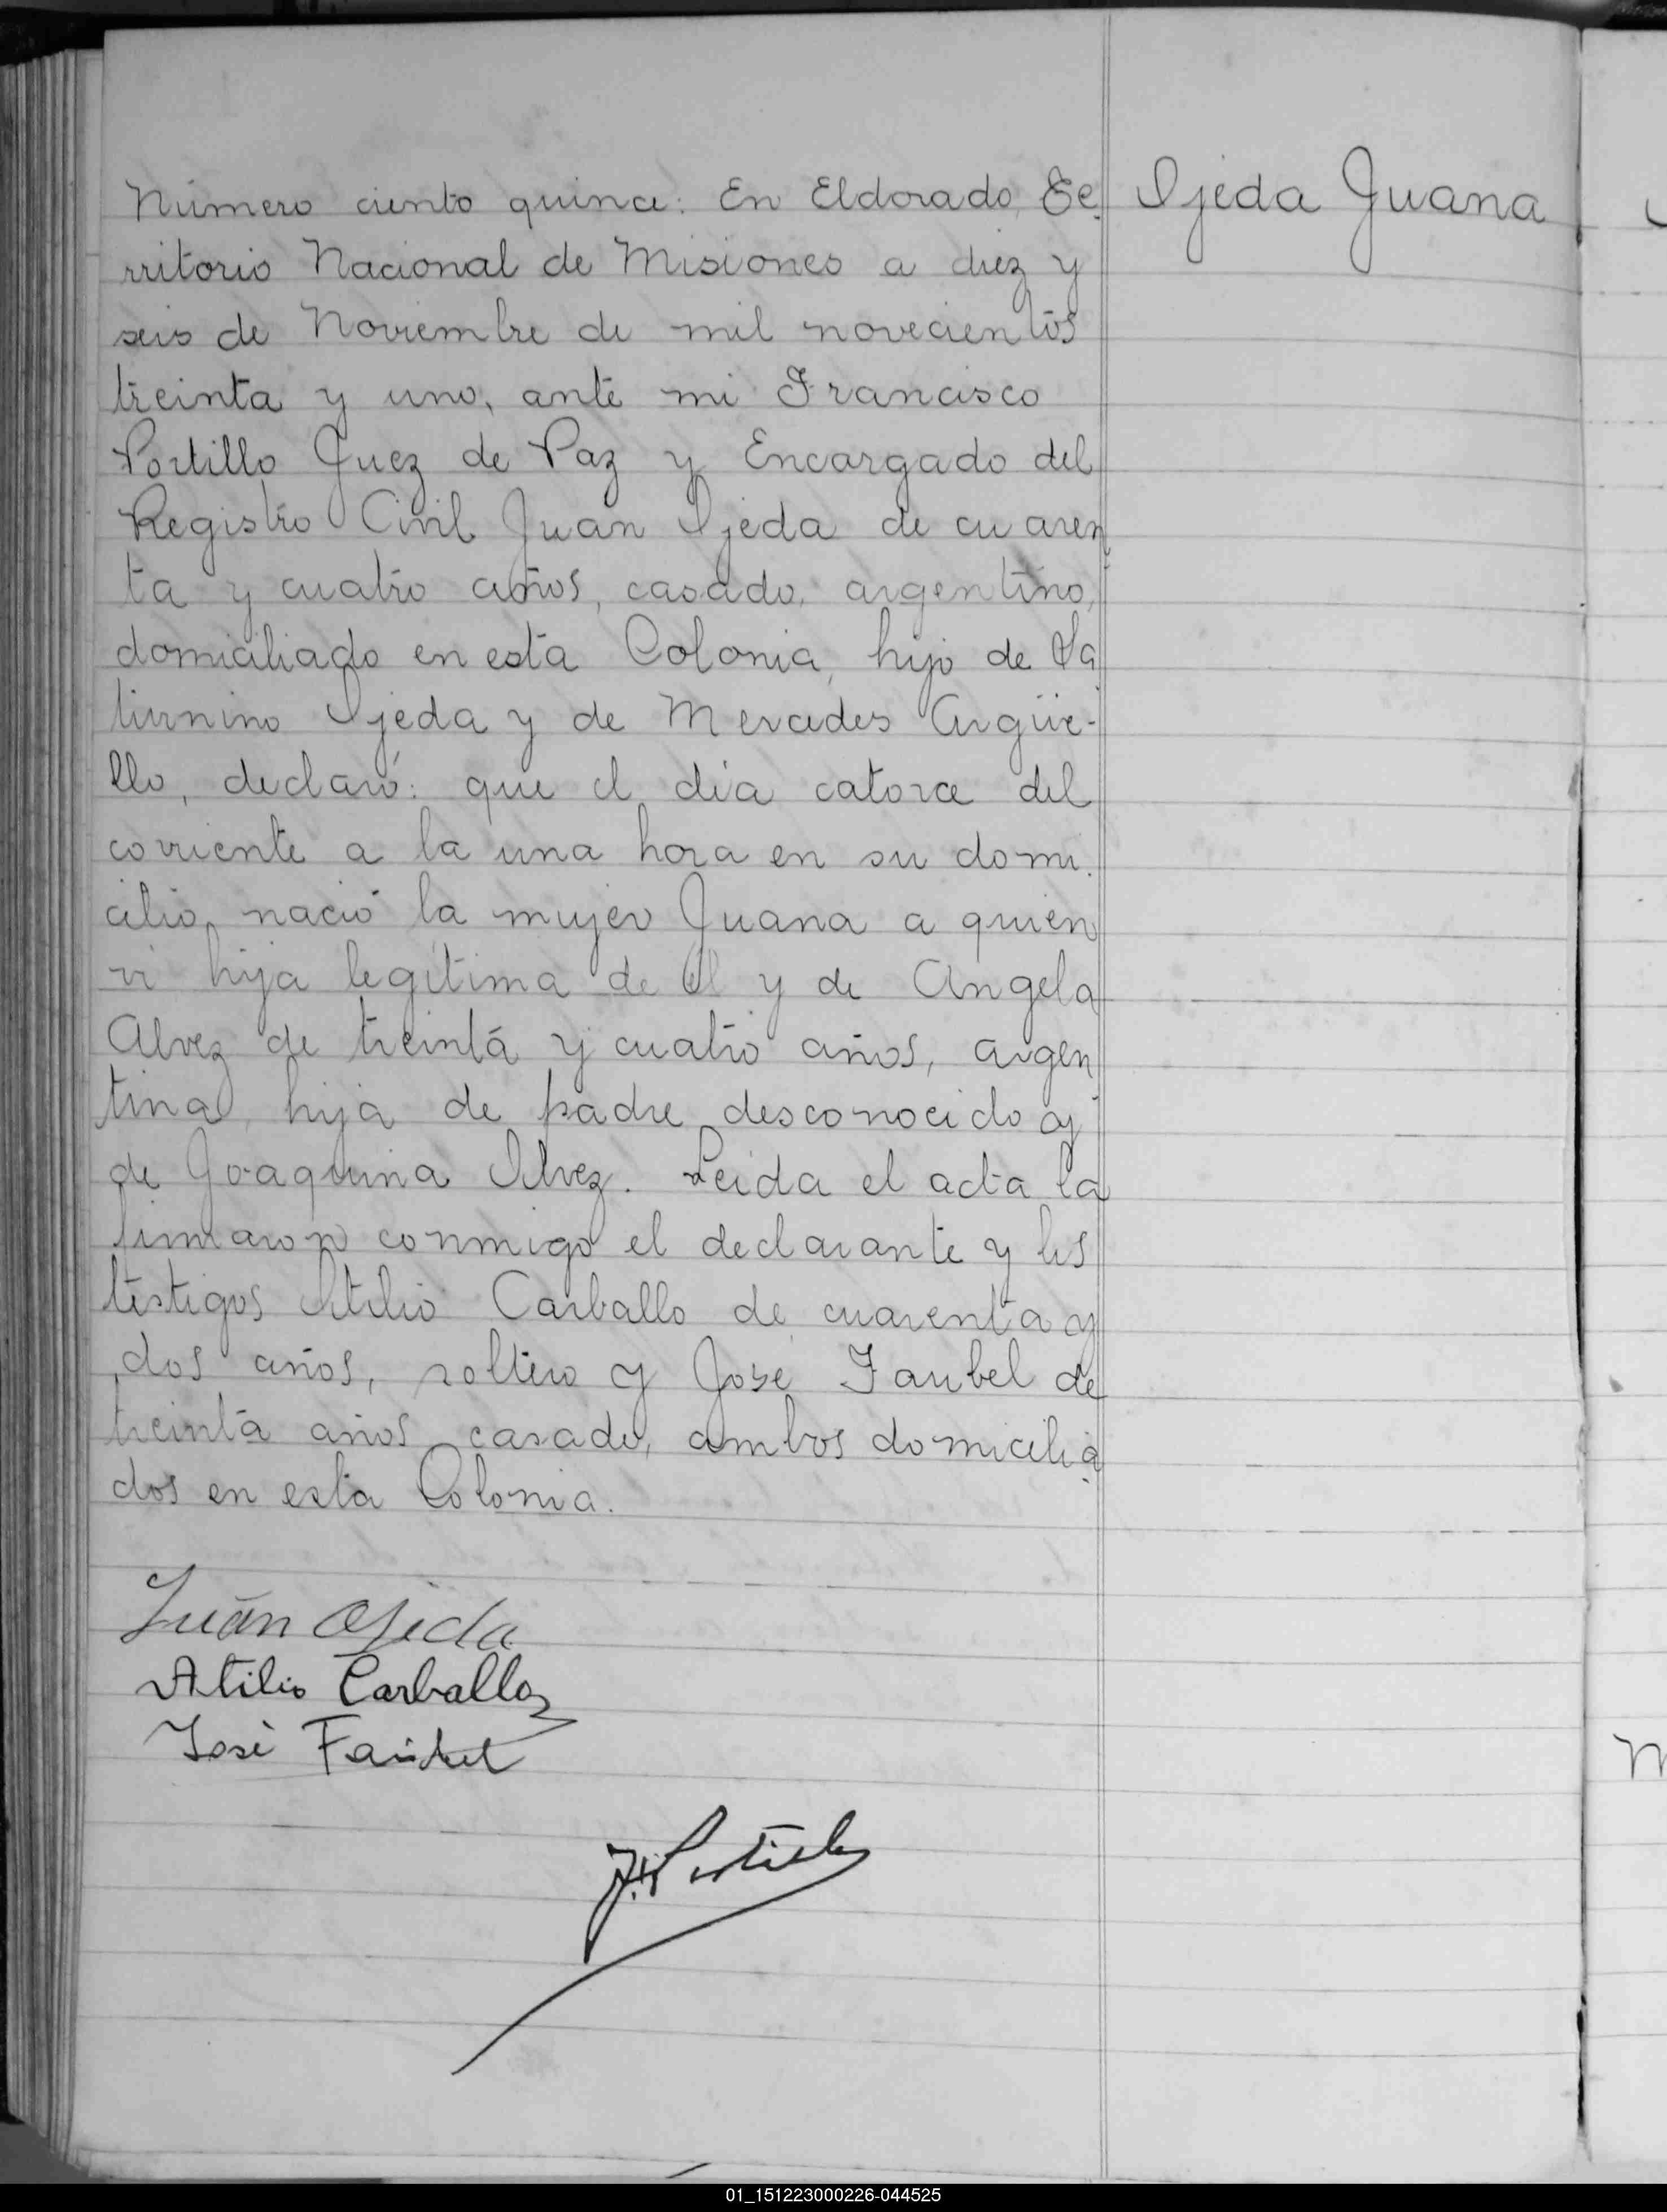 Número ciento quince: En Eldorado, Te-
rritorio Nacional de Misiones a diez y
seis de Noviembre de mil novecientos
treinta y uno, ante mi Francisco
Portillo Juez de Paz y Encargado del
Registro Civil Juan Ojeda de cuaren
ta y cuatro años, casado, argentino,
domiciliado en esta Colonia, hijo de Sa
turnino Ojeda y de Mercedes Argüe-
llo, declaró: que el dia catorce del
corriente a la una hora en su domi-
cilio, nació la mujer Juana a quien
vi hija legítima de él y de Angela
Alvez de treinta y cuatro años, argen
tina, hija de padre desconocido y
de Joaquina Alvez. Leida el acta la
firmaron conmigo el declarante y los
testigos Atilio Carballo de cuarenta y
dos años, soltero y José Faubel de
treinta años casado, ambos domicilia
dos en esta Colonia.
Ojeda Juana
Juán Ojeda
Atilio Carballo
José Faubel
F. Portillo
01_151223000226-044525